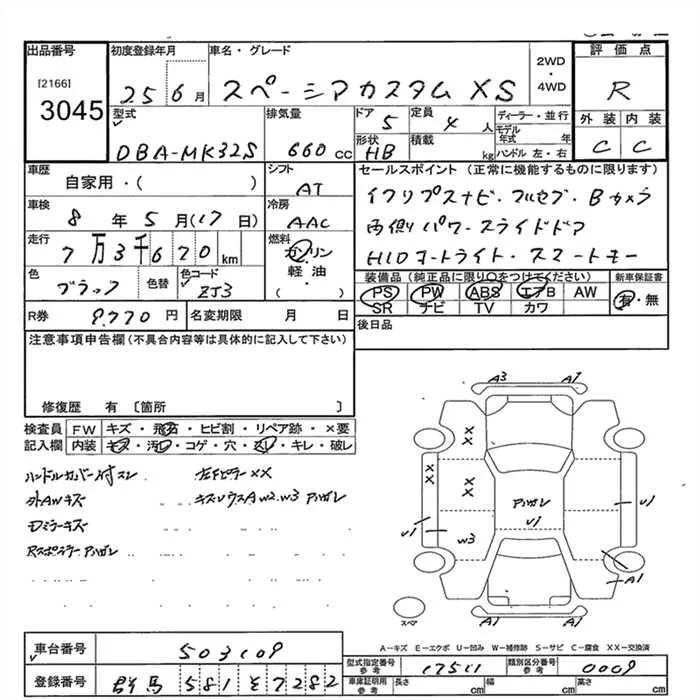 出品番号 初度登録年月 車名・グレード 2WD・4WD 評価点
[2166]
3045
25 6月 スペーシアカスタム XS R
型式 排気量 ドア 定員 ディーラー・並行 外装 内装
DBA-MK32S 660cc 5 4人 モデル年式 年 C C
形状 積載 ハンドル 左・右
HB kg
車歴 シフト セールスポイント(正常に機能するものに限ります)
自家用・( ) AT
車検 冷房 フルセグ・Bカメラ
8年5月(17日) AAC 両側パワースライドドア
走行 燃料 HIDヘッドライト・スマートキー
7万3千670km ガソリン・軽油・( )
色 色替 色コード 装備品(純正品に限り○をつけてください) 新車保証書
ブラック ZJ3 PS PW ABS エアB AW 有・無
SR ナビ TV カワ
R券 9,770円 名変期限 月 日 後日品
注意事項申告欄(不具合内容等は具体的に記入して下さい)
修復歴 有〔箇所 〕
検査員記入欄 FW キズ・飛石・ヒビ割・リペア跡・×要
内装 キズ・汚れ・コゲ・穴・スレ・キレ・破レ
ハンドルカバー付スレ 左Fピラー XX
外AWキズ キズソウスA W2.W3 アリ
Dミラーキズ
Rスポイラー
A3 A1
XX
XX
XX
U1
U1
U1
W3
A1
A1 A1
スペア
A-キズ E-エクボ U-凹み W-補修跡 S-サビ C-腐食 XX-交換済
車台番号 503109
型式指定番号 参考 17511 類別区分番号 参考 0009
登録番号 群馬 581 そ 7282
車庫証明用 参考 長さ cm 幅 cm 高さ cm